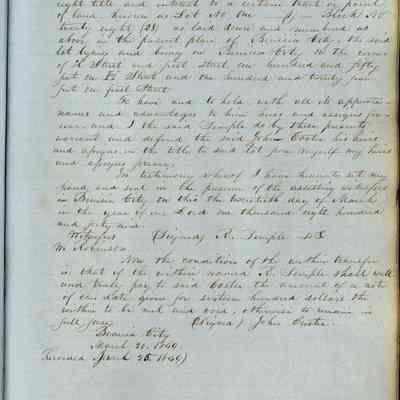 right title and interest to a certain tract or parcel
of land known as Lot No One — 1 — Block No
twenty eight (28) as laid down and numbered as
above in the present plan of Benicia City. The said
lot lying and being in Benicia City on the corner
of H Street and first Street one hundred and fifty
feet on H Street and one hundred and twenty five
feet on first Street.
To have and to hold with all its apperte-
nances and advantages to him heirs and assigns for-
ever and I the said Semple do by these presents
warrant and defend the said John Custer his heirs
and assigns in the title to said lot from myself my heirs
and assigns forever.
In testimony whereof I have hereunto set my
hand and seal in the presence of the assisting witnesses
in Benicia City on this the twentieth day of March
in the year of our Lord one thousand eight hundred
and forty nine.
Witness (Signed) R. Semple LS
W. Robinson
Now the condition of the within transfer
is that if the within named R. Semple shall well
and truly pay to said Custer the amount of a note
of our date given for sixteen hundred dollars the
within to be null and void, otherwise to remain in
full force (Signed) John Custer
Benicia City
March 20. 1849
Recorded April 25. 1849)